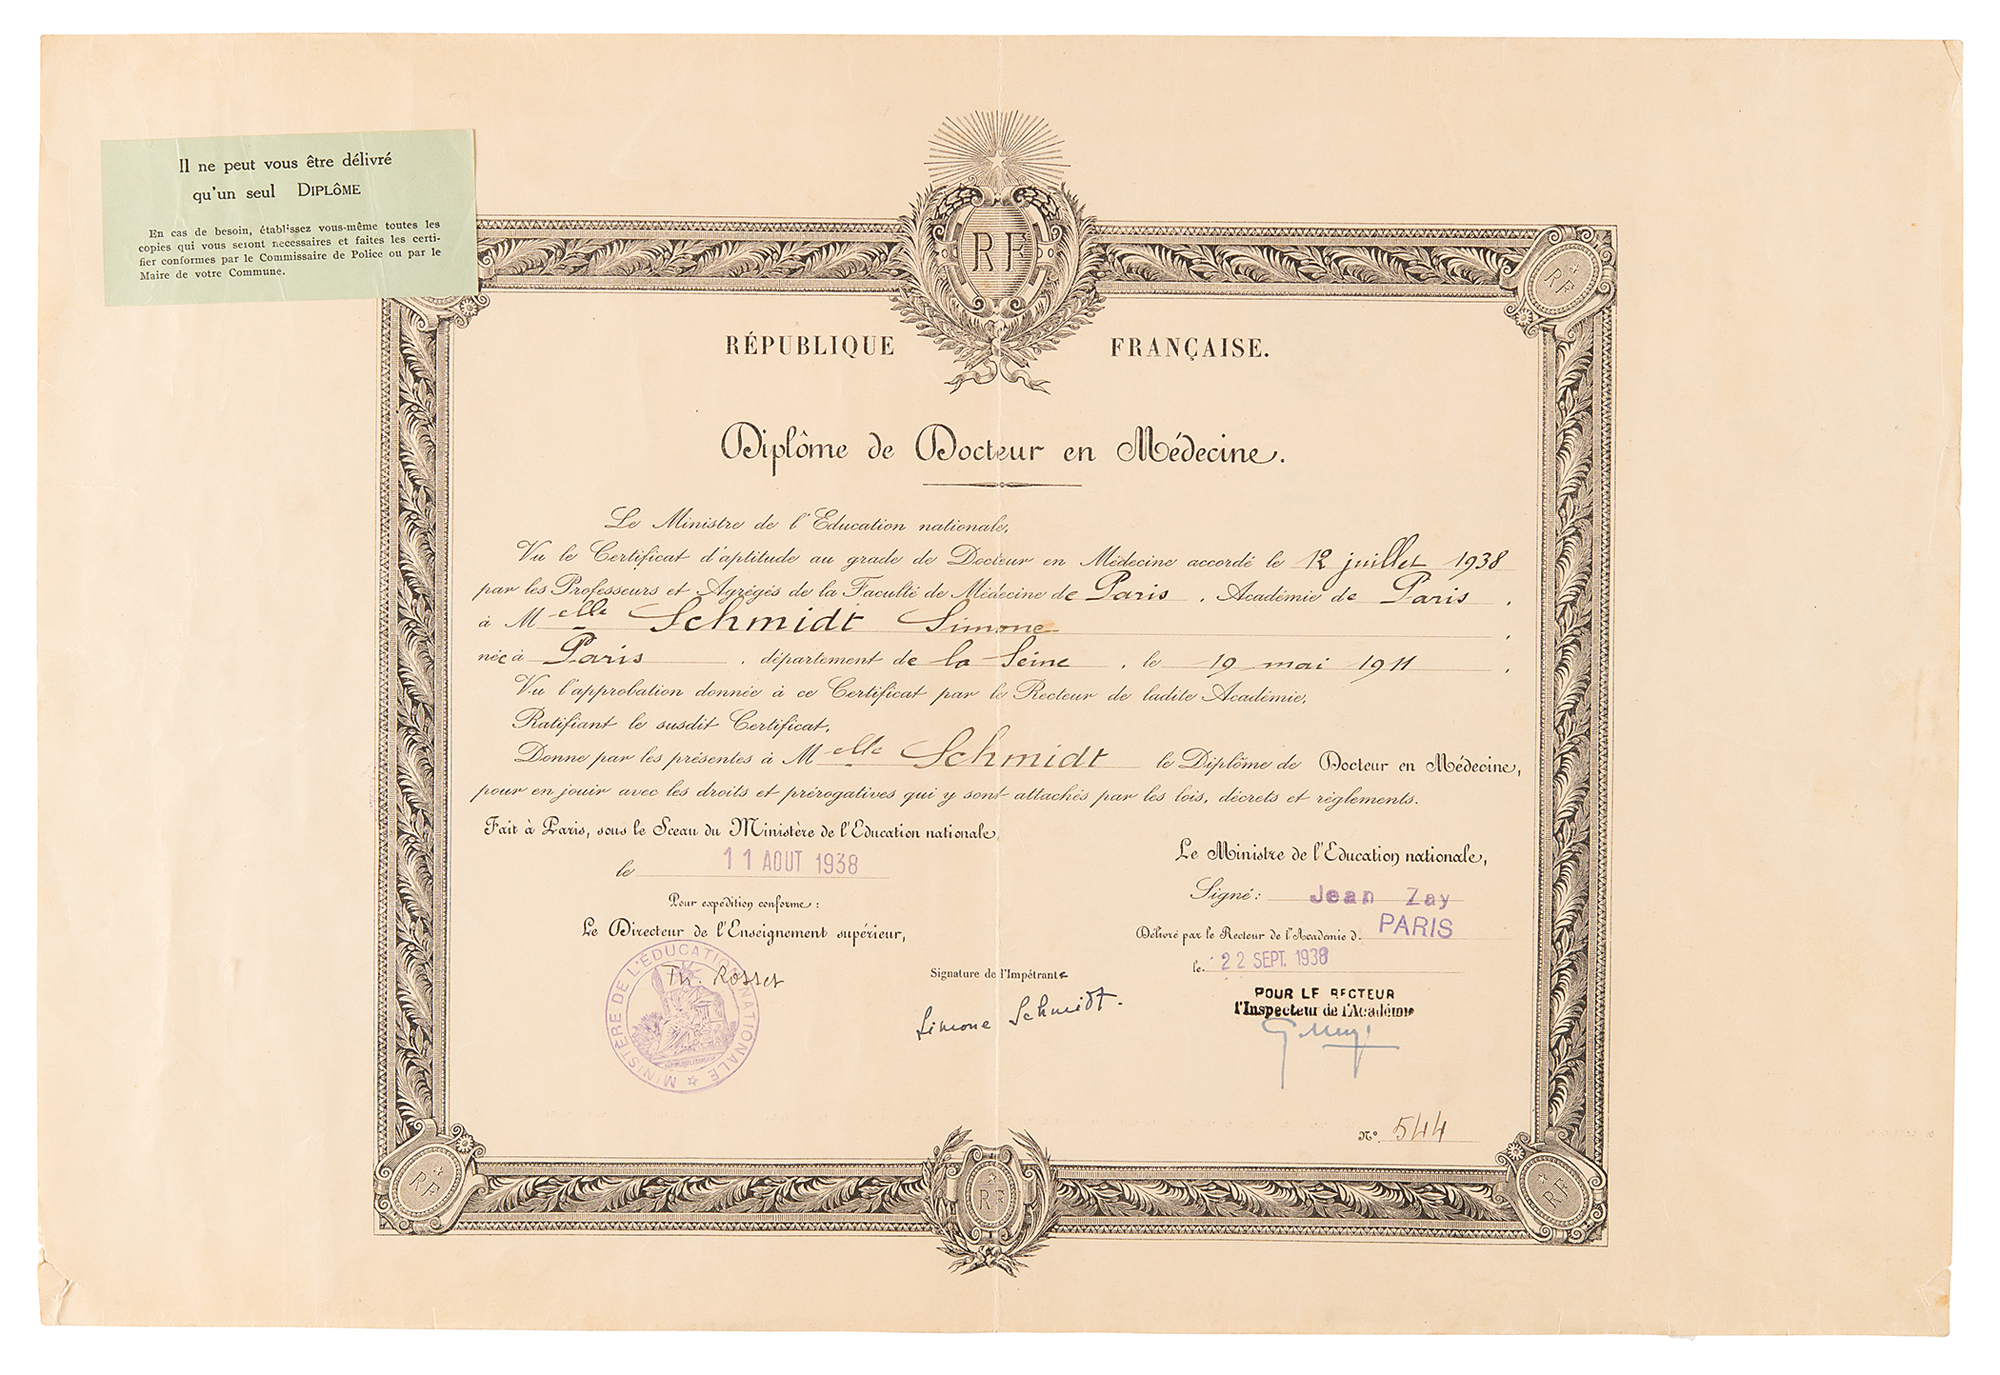 Il ne peut vous être délivré
qu'un seul DIPLÔME
En cas de besoin, établissez vous-même toutes les
copies qui vous seront necessaires et faites les certi-
fier conformes par le Commissaire de Police ou par le
Maire de votre Commune.
RF
RF
RÉPUBLIQUE FRANÇAISE.
Diplôme de Docteur en Médecine.
Le Ministre de l'Education nationale,
Vu le Certificat d'aptitude au grade de Docteur en Médecine accordé le 12 juillet 1938
par les Professeurs et Agrégés de la Faculté de Médecine de Paris, Académie de Paris,
à Melle Schmidt Simone,
née à Paris, département de la Seine, le 19 mai 1911,
Vu l'approbation donnée à ce Certificat par le Recteur de ladite Académie,
Ratifiant le susdit Certificat,
Donne par les présentes à Melle Schmidt le Diplôme de Docteur en Médecine,
pour en jouir avec les droits et prérogatives qui y sont attachés par les lois, décrets et règlements.
Fait à Paris, sous le Sceau du Ministère de l'Education nationale,
le 11 AOUT 1938
Pour expédition conforme :
Le Directeur de l'Enseignement supérieur,
Th. Rosset
MINISTÈRE DE L'ÉDUCATION NATIONALE
Signature de l'Impétrante
Simone Schmidt.
Le Ministre de l'Education nationale,
Signé : Jean Zay
Délivré par le Recteur de l'Académie d. PARIS
le. 22 SEPT. 1938
POUR LE RECTEUR
l'Inspecteur de l'Académie
N° 544
RF
RF
RF